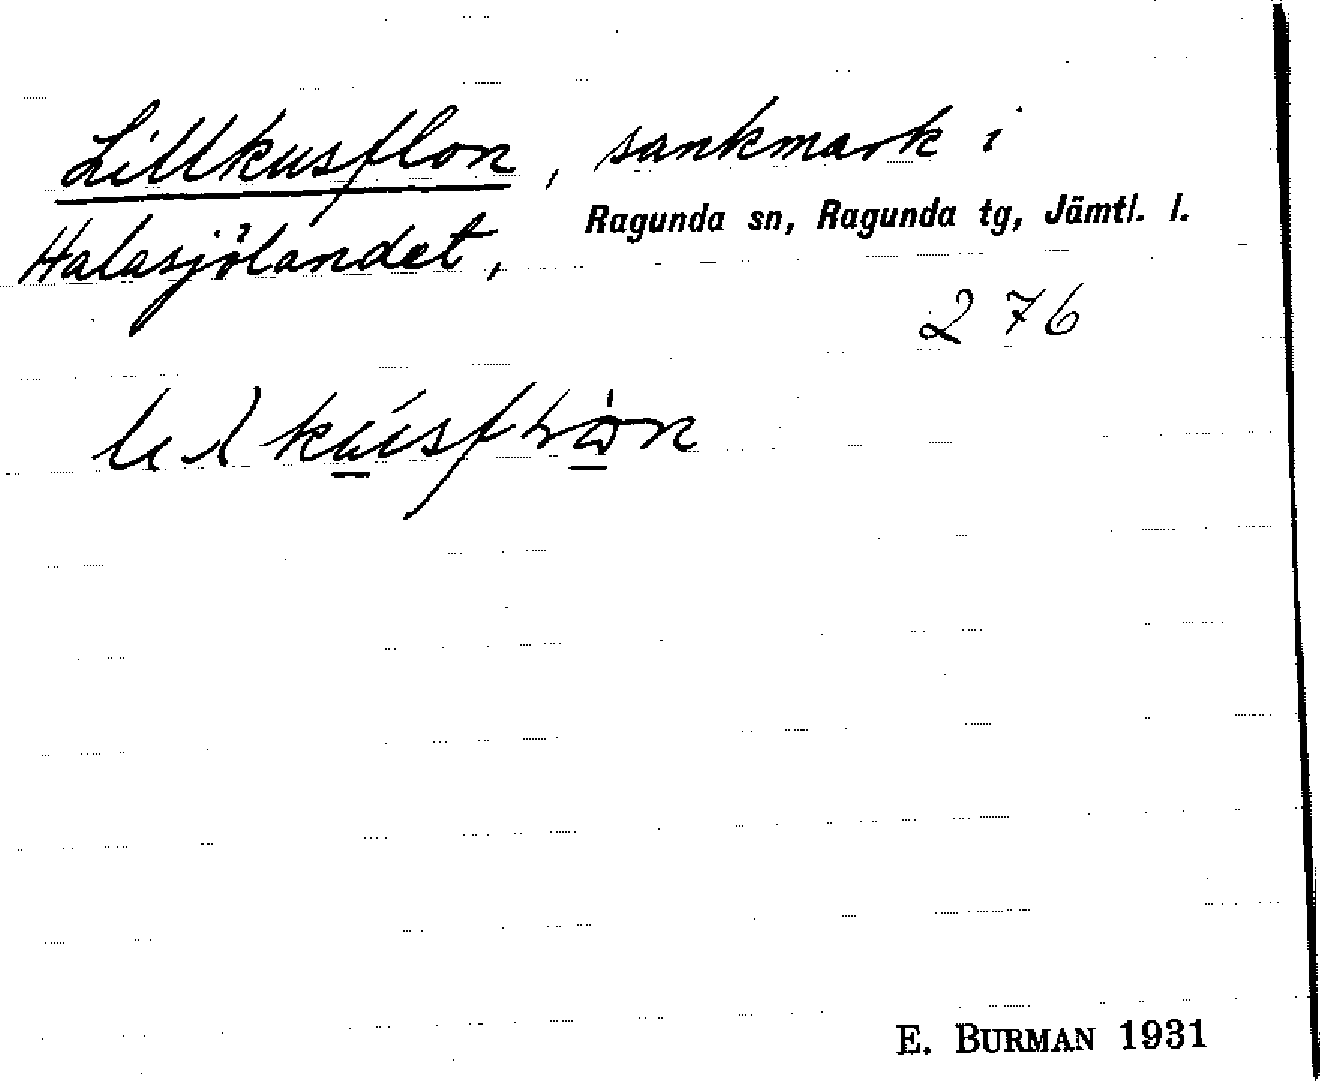 Lillkusflon, sankmark i
Halasjölandet, Ragunda sn, Ragunda tg, Jämtl. l.
276
E. BURMAN 1931